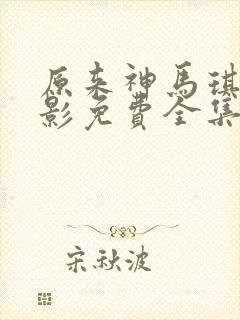 原来神馬琪
影免費全集
宋秋波